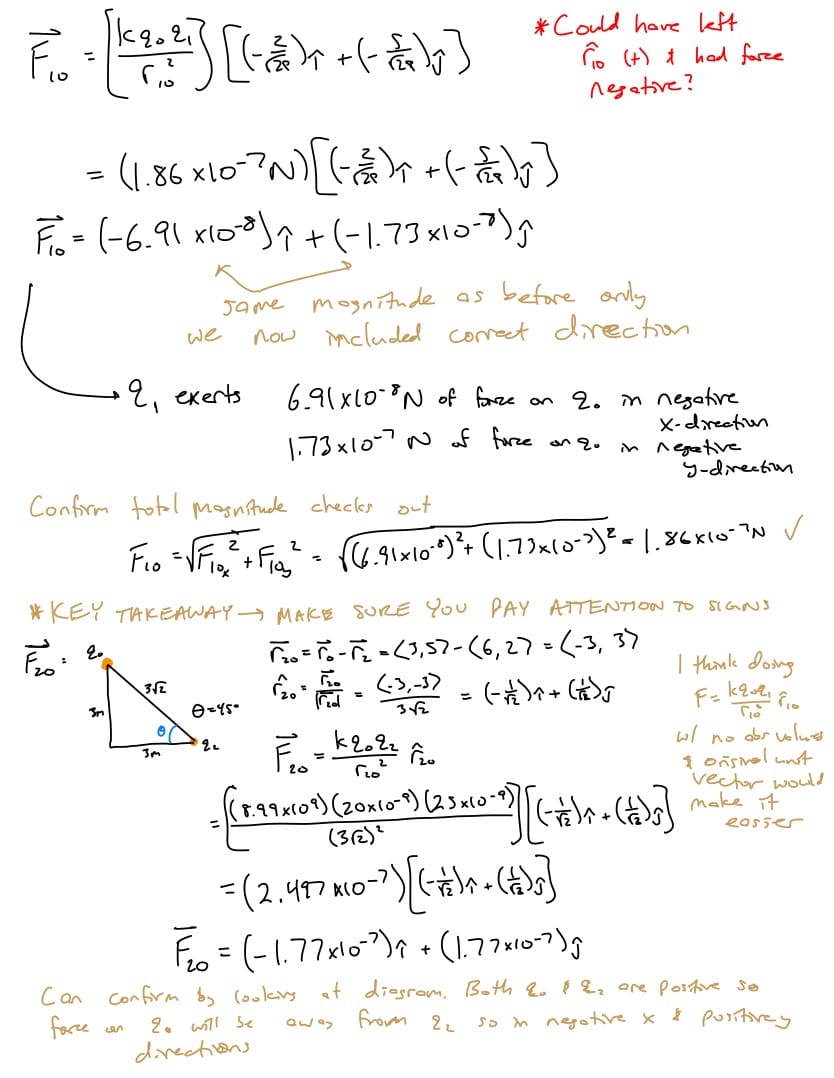 F⃗₁₀ = [kq₀q₁ / r₁₀²] [(-2/√29)î + (-5/√29)ĵ]
*Could have left
r̂₁₀ (+) & had force
negative?
= (1.86 x10⁻⁷N)[(-2/√29)î + (-5/√29)ĵ]
F⃗₁₀ = (-6.91 x10⁻⁸)î + (-1.73x10⁻⁷)ĵ
same magnitude as before only
we now included correct direction
q₁ exerts 6.91x10⁻⁸N of force on q₀ in negative
x-direction
1.73x10⁻⁷ N of force on q₀ in negative
y-direction
Confirm total magnitude checks out
F₁₀ = √F₁₀ₓ² + F₁₀y² = √(6.91x10⁻⁸)² + (1.73x10⁻⁷)² = 1.86x10⁻⁷N ✓
*KEY TAKEAWAY → MAKE SURE YOU PAY ATTENTION TO SIGNS
F⃗₂₀ :
q₀
3√2
3m
θ
θ=45°
q₂
3m
r⃗₂₀ = r⃗₀ - r⃗₂ = <3,5> - <6,2> = <-3, 3>
r̂₂₀ = r⃗₂₀ / |r₂₀| = <-3,-3> / 3√2 = (-1/√2)î + (1/√2)ĵ
F⃗₂₀ = kq₀q₂ / r₂₀² r̂₂₀
= [(8.99x10⁹)(20x10⁻⁹)(25x10⁻⁹) / (3√2)²] [(-1/√2)î + (1/√2)ĵ]
= (2.497 x10⁻⁷)[(-1/√2)î + (1/√2)ĵ]
F⃗₂₀ = (-1.77x10⁻⁷)î + (1.77x10⁻⁷)ĵ
I think doing
F = kq₀q₁ / r₁₀² r̂₁₀
w/ no abs values
& original unit
vector would
make it
easier
Can confirm by looking at diagram. Both q₀ & q₂ are positive so
force on q₀ will be away from q₂ so in negative x & positive y
directions